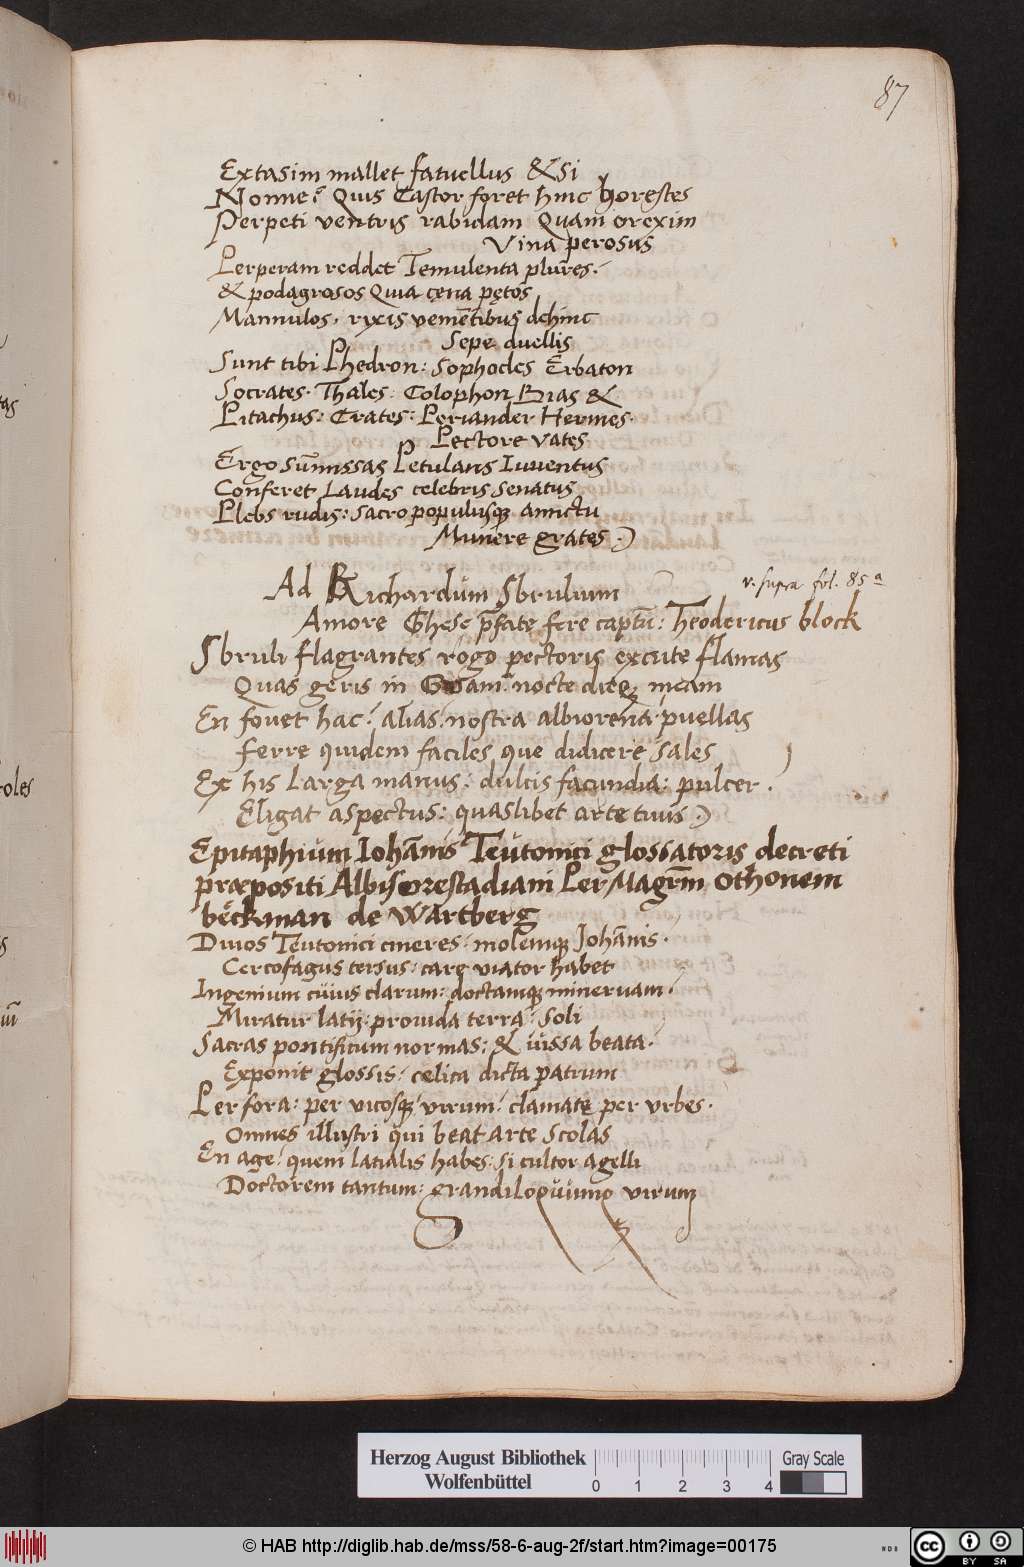 87
Extasim mallet fatuellus & si
Nonne? Quis Castor foret hinc horęstes
Perpeti ventris rabidam Quam orexim
Vina perosus
Perperam reddet Temulenta plures.
& podagrosos Quia cęna pętos
Mannulos. rixis vemētibusq dehinc
Sepe duellis
Sunt tibi Phedron: Sophocles Erbaton
Socrates. Thales: Colophon Bias &
Pitachus: Crates: Periander Hermes.
Pectore vates
Ergo sūmissas Petulans Iuventus
Conferet Laudes celebris senatus
Plebs rudis: sacro populusq amictu
Munere grates.)
Ad Richardum Sbrulium
v. supra fol. 85 a
Amore Ghese p̄fate fere captū: Theodericus block
Sbruli flagrantes rogo pectoris excute flāmas
Quas geris in nocte dieq meam
En fovet hac: alias: nostra albiorenti puellas
ferre quidem faciles que didicere sales
Ex his Larga manus: dulcis facundia: pulcer.
Eligat aspectus: quaslibet arte tuus.)
Epitaphium Iohānis Teutonici glossatoris decreti
præpositi Albisorestadiani Per Magrm̄ Othonem
beckman de Wartberg
Divos Teutonici cineres: molemq Johānis.
Cercofagus tersus: care viator habet
Ingenium cuius clarum: doctamq minervam.
Miratur latij: provida terra: soli
Sacras pontificum normas: & iussa beata.
Exponit glossis: cęlica dicta patrum
Per fora: per vicosq virum: clamate per vrbes.
Omnes illustri qui beat arte scolas
En age: quem latialis habes: si cultor agelli
Doctorem tantum: grandiloquumq virum
Herzog August Bibliothek
Wolfenbüttel
0 1 2 3 4
Gray Scale
© HAB http://diglib.hab.de/mss/58-6-aug-2f/start.htm?image=00175
cc BY SA